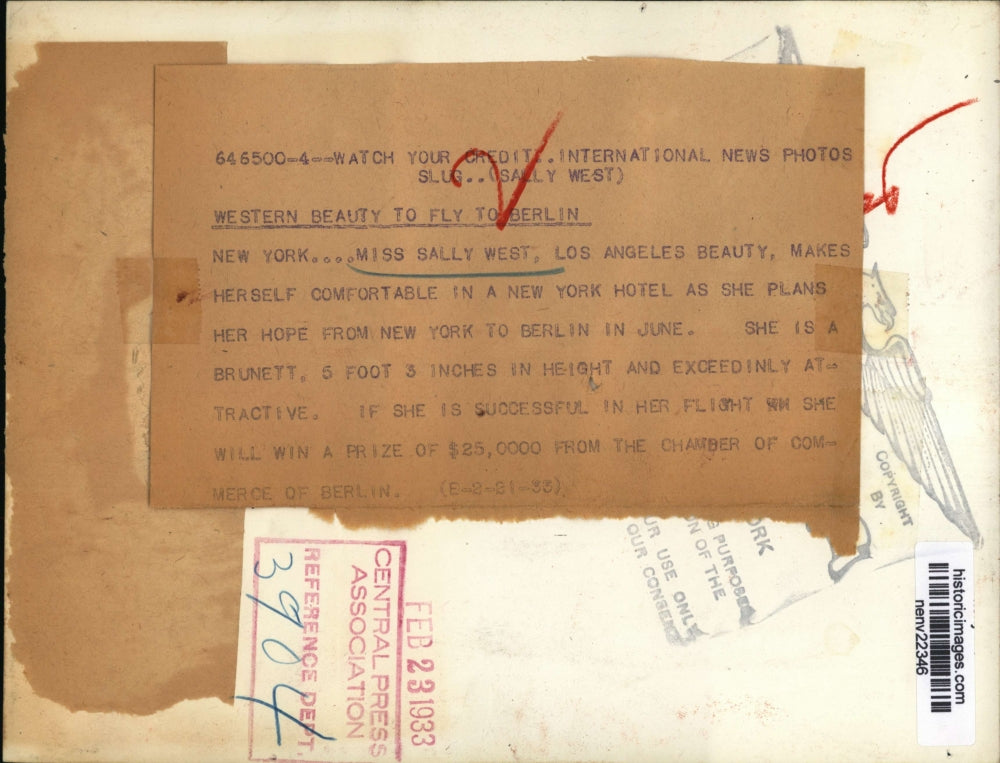 646500-4--WATCH YOUR CREDIT..INTERNATIONAL NEWS PHOTOS
SLUG..(SALLY WEST)
WESTERN BEAUTY TO FLY TO BERLIN
NEW YORK....MISS SALLY WEST, LOS ANGELES BEAUTY, MAKES
HERSELF COMFORTABLE IN A NEW YORK HOTEL AS SHE PLANS
HER HOPE FROM NEW YORK TO BERLIN IN JUNE. SHE IS A
BRUNETT, 5 FOOT 3 INCHES IN HEIGHT AND EXCEEDINLY AT-
TRACTIVE. IF SHE IS SUCCESSFUL IN HER FLIGHT WH SHE
WILL WIN A PRIZE OF $25,0000 FROM THE CHAMBER OF COM-
MERCE OF BERLIN. (B-2-21-33)
COPYRIGHT
BY
PURPOSES
N OF THE
USE ONLY
OUR CONSENT
FEB 23 1933
CENTRAL PRESS
ASSOCIATION
REFERENCE DEPT.
3904
historicimages.com
nenv22346